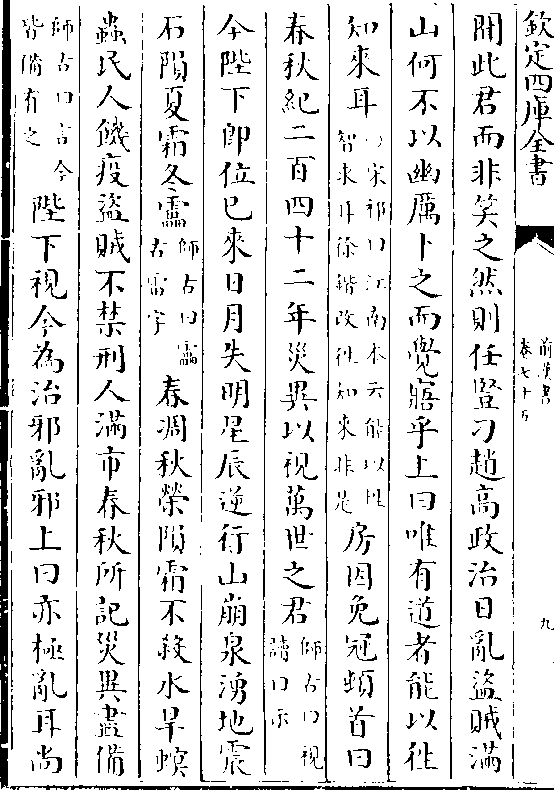 欽定四庫全書
前漢書
卷七十五
九
聞此君而非笑之然則任豎刁趙高政治日亂盜賊滿
山何不以幽厲卜之而覺寤乎上曰唯有道者能以徃
知來耳宋祁曰江南本云能以性智來耳徐鍇改徃知來非是房因免冠頓首曰
春秋紀二百四十二年災異以視萬世之君師古曰視讀曰示
今陛下即位已來日月失明星辰逆行山崩泉湧地震
石隕夏霜冬靁師古曰靁古雷字春凋秋榮隕霜不殺水旱螟
蟲民人饑疫盜賊不禁刑人滿市春秋所記災異盡備
師古曰言今皆備有之陛下視今為治邪亂邪上曰亦極亂耳尚